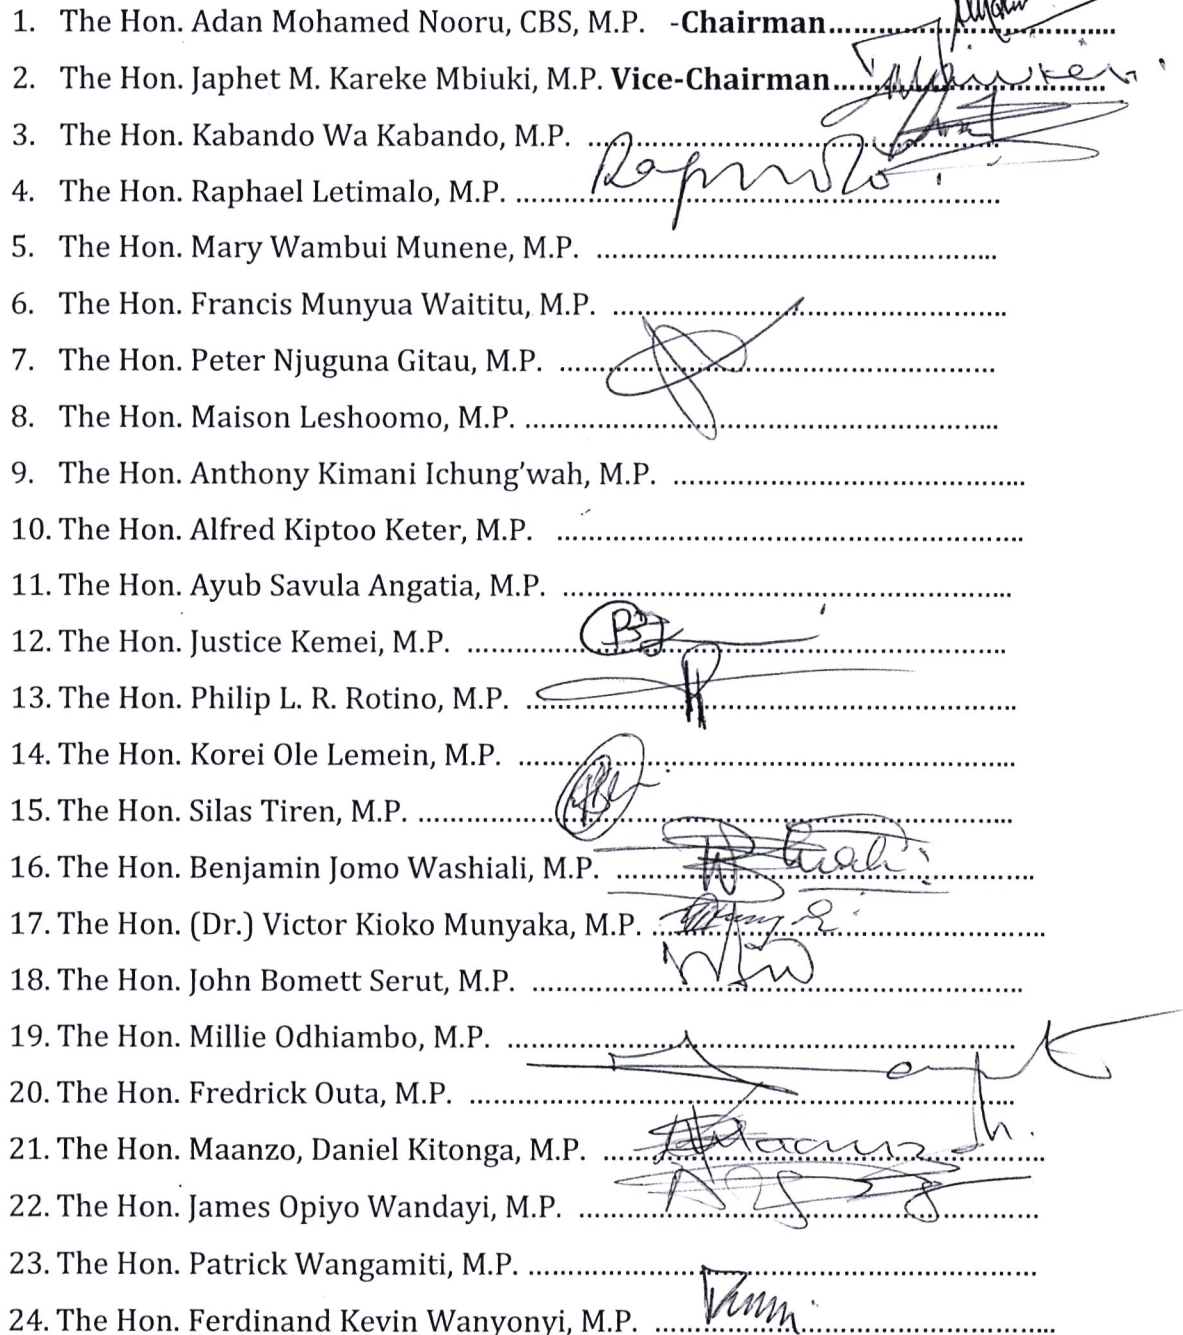 1. The Hon. Adan Mohamed Nooru, CBS, M.P. -Chairman
2. The Hon. Japhet M. Kareke Mbiuki, M.P. Vice-Chairman
3. The Hon. Kabando Wa Kabando, M.P.
4. The Hon. Raphael Letimalo, M.P.
5. The Hon. Mary Wambui Munene, M.P.
6. The Hon. Francis Munyua Waititu, M.P.
7. The Hon. Peter Njuguna Gitau, M.P.
8. The Hon. Maison Leshoomo, M.P.
9. The Hon. Anthony Kimani Ichung’wah, M.P.
10. The Hon. Alfred Kiptoo Keter, M.P.
11. The Hon. Ayub Savula Angatia, M.P.
12. The Hon. Justice Kemei, M.P.
13. The Hon. Philip L. R. Rotino, M.P.
14. The Hon. Korei Ole Lemein, M.P.
15. The Hon. Silas Tiren, M.P.
16. The Hon. Benjamin Jomo Washiali, M.P.
17. The Hon. (Dr.) Victor Kioko Munyaka, M.P.
18. The Hon. John Bomett Serut, M.P.
19. The Hon. Millie Odhiambo, M.P.
20. The Hon. Fredrick Outa, M.P.
21. The Hon. Maanzo, Daniel Kitonga, M.P.
22. The Hon. James Opiyo Wandayi, M.P.
23. The Hon. Patrick Wangamiti, M.P.
24. The Hon. Ferdinand Kevin Wanyonyi, M.P.